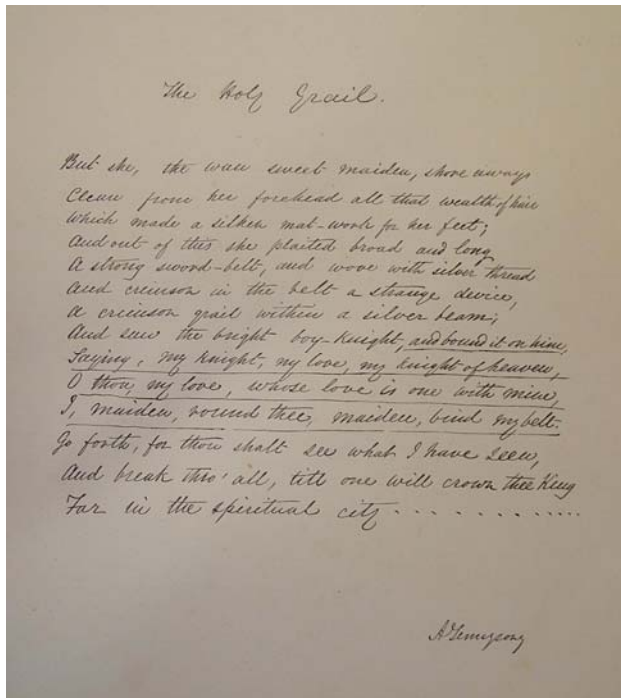 The Holy Grail.
But she, the wan sweet maiden, shore away
Clean from her forehead all that wealth of hair
Which made a silken mat-work for her feet;
And out of this she plaited broad and long
A strong sword-belt, and wove with silver thread
And crimson in the belt a strange device,
A crimson grail within a silver beam;
And saw the bright boy-knight, and bound it on him,
Saying, my knight, my love, my knight of heaven,
O thou, my love, whose love is one with mine,
I, maiden, round thee, maiden, bind my belt.
Go forth, for thou shalt see what I have seen,
And break thro' all, till one will crown thee King
Far in the spiritual city . . . . . . . . . . . .
A Tennyson